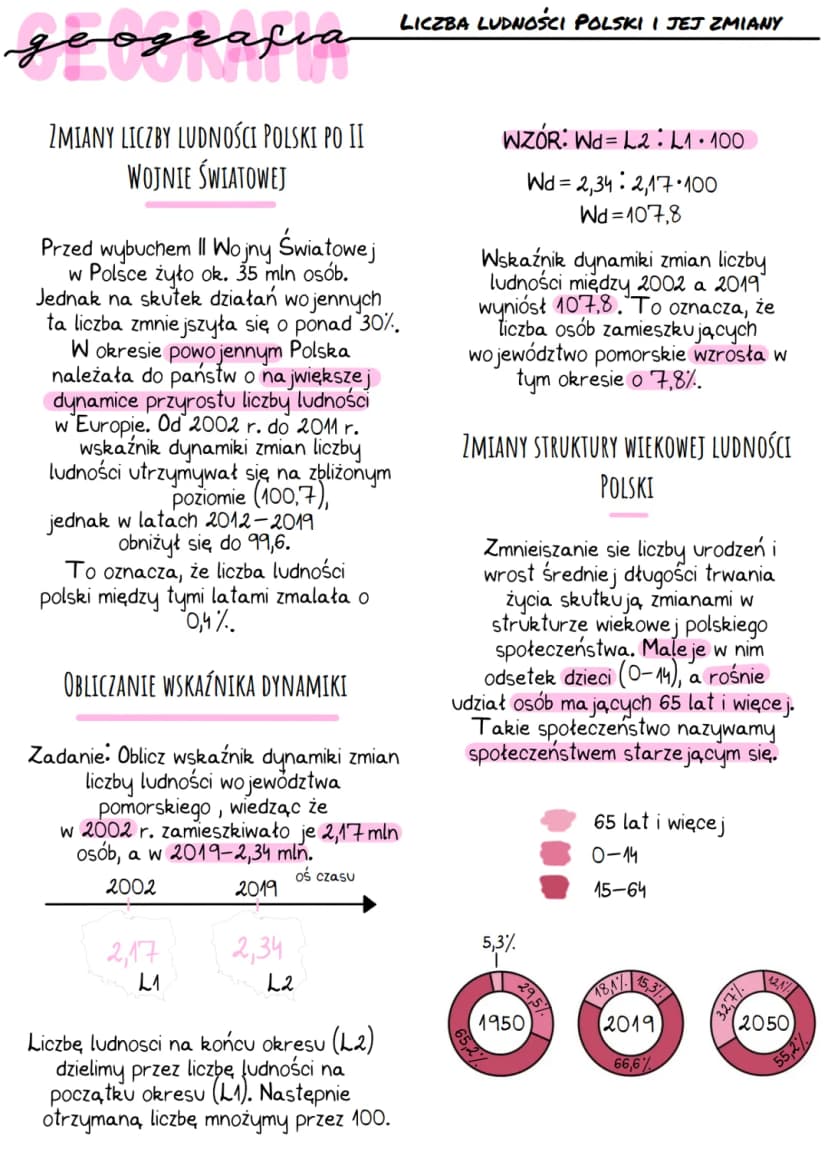 geografia
GEOGRAFIA
LICZBA LUDNOŚCI POLSKI I JEJ ZMIANY
ZMIANY LICZBY LUDNOŚCI POLSKI PO II
WOJNIE ŚWIATOWEJ
Przed wybuchem II Wojny Światowej
w Polsce żyło ok. 35 mln osób.
Jednak na skutek działań wojennych
ta liczba zmniejszyła się o ponad 30%.
W okresie powojennym Polska
należała do państw o największej
dynamice przyrostu liczby ludności
w Europie. Od 2002 r. do 2011 r.
wskaźnik dynamiki zmian liczby
ludności utrzymywał się na zbliżonym
poziomie (100,7),
jednak w latach 2012-2019
obniżył się do 99,6.
To oznacza, że liczba ludności
polski między tymi latami zmalała o
0,4%.
OBLICZANIE WSKAŹNIKA DYNAMIKI
Zadanie: Oblicz wskaźnik dynamiki zmian
liczby ludności województwa
pomorskiego , wiedząc że
w 2002 r. zamieszkiwało je 2,17 mln
osób, a w 2019-2,34 mln.
oś czasu
2002 2019
2,17 2,34
L1 L2
Liczbę ludnosci na końcu okresu (L2)
dzielimy przez liczbę ludności na
początku okresu (L1). Następnie
otrzymaną liczbę mnożymy przez 100.
WZÓR: Wd= L2 : L1 · 100
Wd = 2,34 : 2,17·100
Wd =107,8
Wskaźnik dynamiki zmian liczby
ludności między 2002 a 2019
wyniósł 107,8. To oznacza, że
liczba osób zamieszkujących
województwo pomorskie wzrosła w
tym okresie o 7,8%.
ZMIANY STRUKTURY WIEKOWEJ LUDNOŚCI
POLSKI
Zmnieiszanie sie liczby urodzeń i
wrost średniej długości trwania
życia skutkują zmianami w
strukturze wiekowej polskiego
społeczeństwa. Maleje w nim
odsetek dzieci (0-14), a rośnie
udział osób mających 65 lat i więcej.
Takie społeczeństwo nazywamy
społeczeństwem starzejącym się.
65 lat i więcej
0-14
15-64
5,3%
29,5%
1950
65,2%
18,1% 15,3%
2019
66,6%
32,7% 12,1%
2050
55,2%